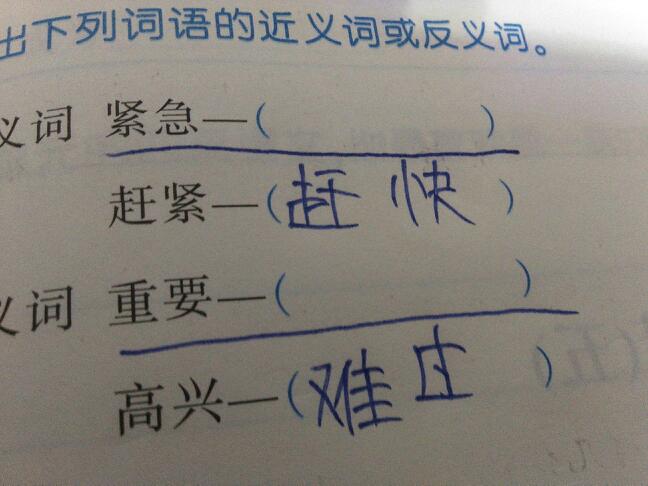 出下列词语的近义词或反义词。
义词 紧急—( )
赶紧—(赶快)
义词 重要—( )
高兴—(难过)